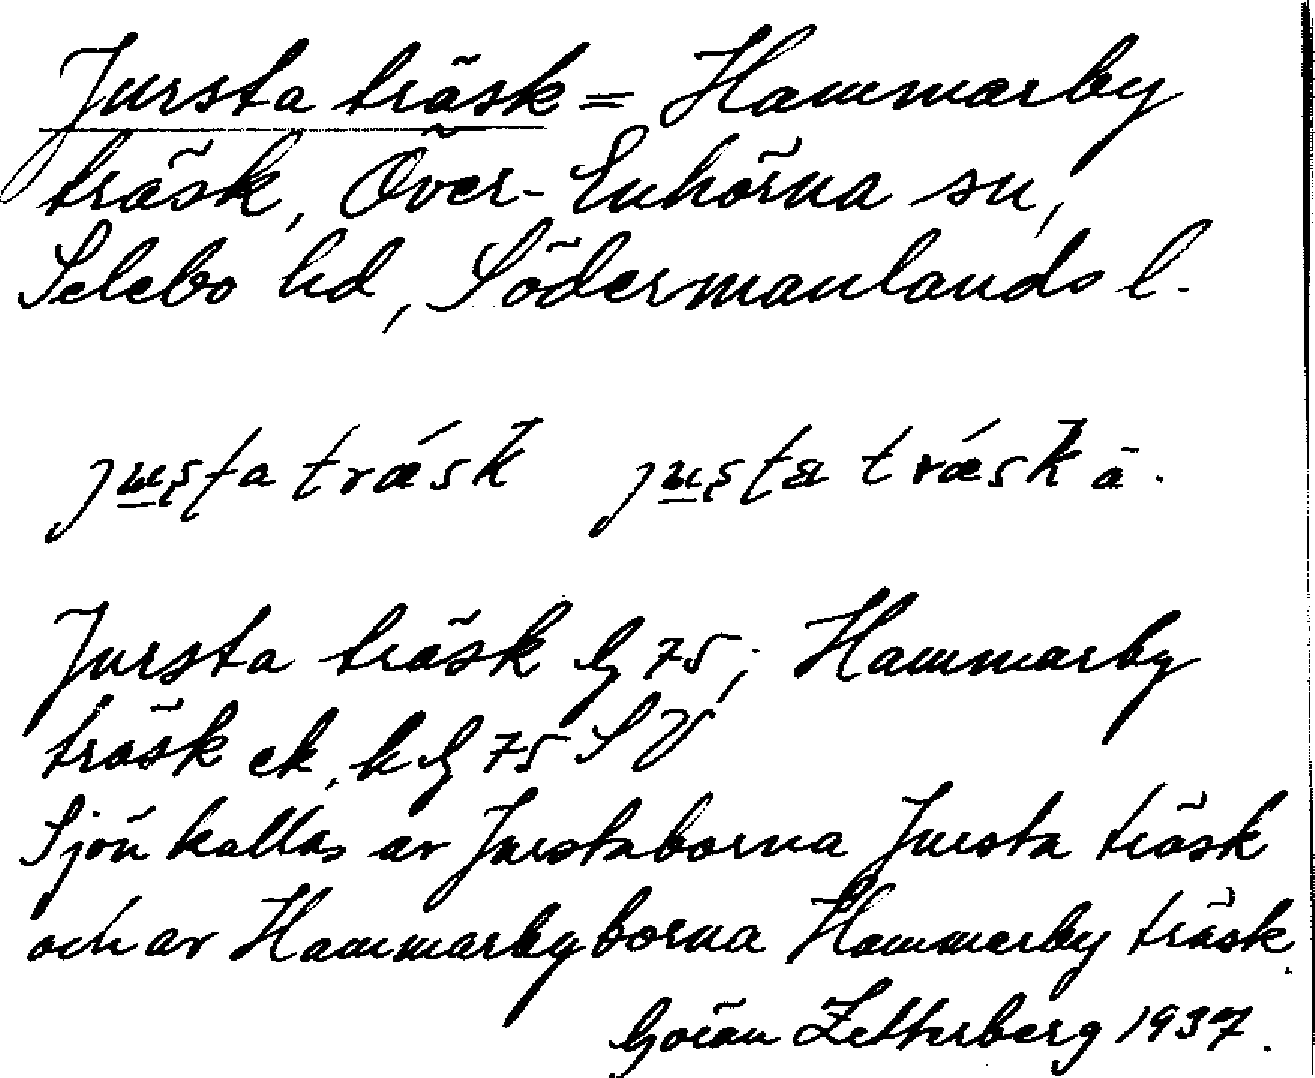 Jursta träsk = Hammarby
träsk, Över-Enhörna sn,
Selebo hd, Södermanlands l.
Jursta träsk G 75; Hammarby
träsk ek. k G 75 SV
Sjön kallas av Jurstaborna Jursta träsk
och av Hammarbyborna Hammarby träsk.
Göran Zetterberg 1937.